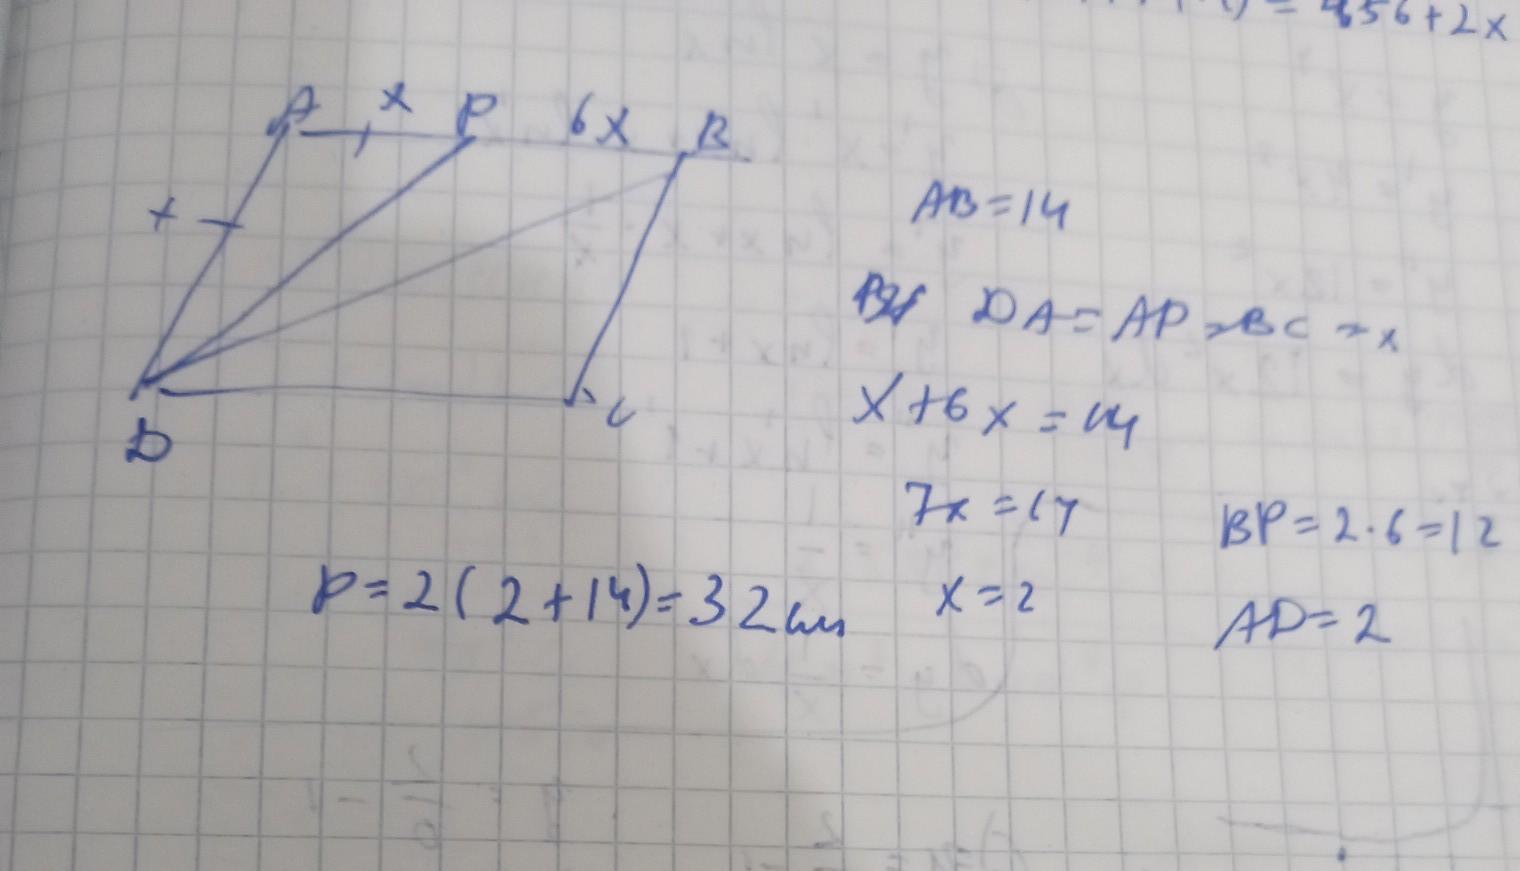 = 456+2x
A x P 6x B
x
D
C
AB=14
DA=AP=BC=x
x+6x=14
7x=14
x=2
BP=2·6=12
AD=2
P=2(2+14)=32cm